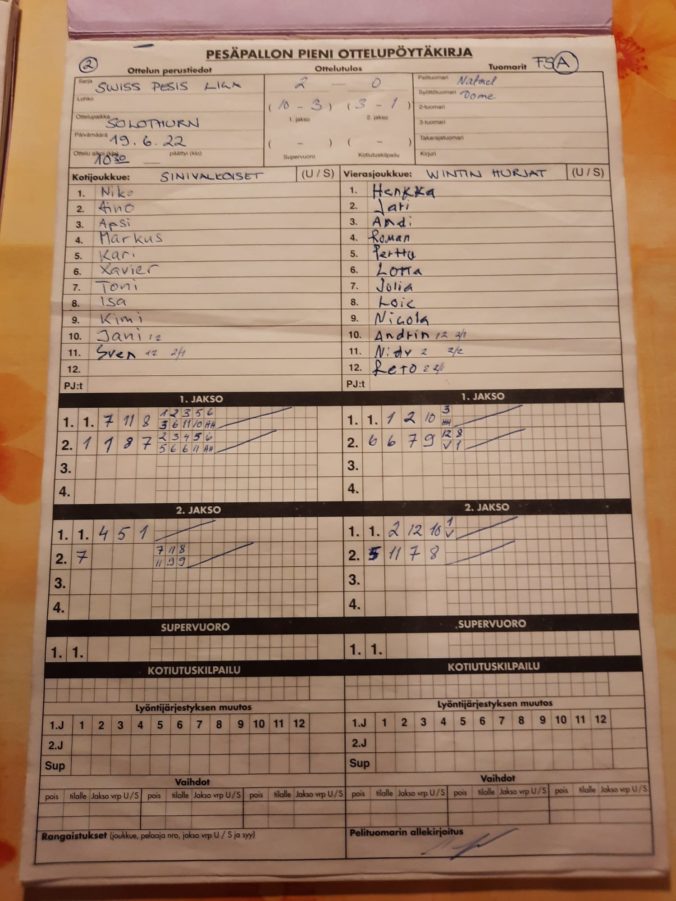 PESÄPALLON PIENI OTTELUPÖYTÄKIRJA
2 Ottelun perustiedot Ottelutulos Tuomarit FS A
Sarja SWISS PESIS LIGA 2 — 0 Pelituomari
Lohko (10 - 3) (3 - 1) Syöttötuomari Dome
Ottelupaikka SOLOTHURN 1. jakso 2. jakso 2-tuomari
3-tuomari
Päivämäärä 19.6.22 ( - ) ( - ) Takarajatuomari
Ottelu alkoi (klo) 10 30 päättyi (klo) Supervuoro Kotiutuskilpailu Kirjuri
Kotijoukkue: SINIVALKOISET (U / S) Vierasjoukkue: WINTIN HURJAT (U / S)
1. Niko 1. Henkka
2. Aino 2. Jari
3. Apsi 3. Andi
4. Markus 4. Roman
5. Kari 5. Perttu
6. Xavier 6. Lotta
7. Toni 7. Julia
8. Isa 8. Loic
9. Kimi 9. Nicola
10. Jani 12 10. Andrin 12 2/1
11. Sven 12 2/1 11. 2 2/2
12. 12. Reto
PJ:t PJ:t
1. JAKSO 1. JAKSO
1. 1. 7 11 8 1 2 3 5 6 1. 1. 1 2 10 3
3 6 11 10
2. 1 1 8 7 2 3 4 5 6 2. 6 6 7 9 12 8
5 6 6 11 √ 1
3. 3.
4. 4.
2. JAKSO 2. JAKSO
1. 1. 4 5 1 1. 1. 2 12 10 1
√
2. 7 7 11 8 2. 5 11 7 8
11 9 9
3. 3.
4. 4.
SUPERVUORO SUPERVUORO
1. 1. 1. 1.
KOTIUTUSKILPAILU KOTIUTUSKILPAILU
Lyöntijärjestyksen muutos Lyöntijärjestyksen muutos
1.J 1 2 3 4 5 6 7 8 9 10 11 12 1.J 1 2 3 4 5 6 7 8 9 10 11 12
2.J 2.J
Sup Sup
Vaihdot Vaihdot
pois tilalle Jakso vrp U / S pois tilalle Jakso vrp U / S pois tilalle Jakso vrp U / S pois tilalle Jakso vrp U / S pois tilalle Jakso vrp U / S pois tilalle Jakso vrp U / S
Rangaistukset (joukkue, pelaaja nro, jakso vrp U / S ja syy) Pelituomarin allekirjoitus